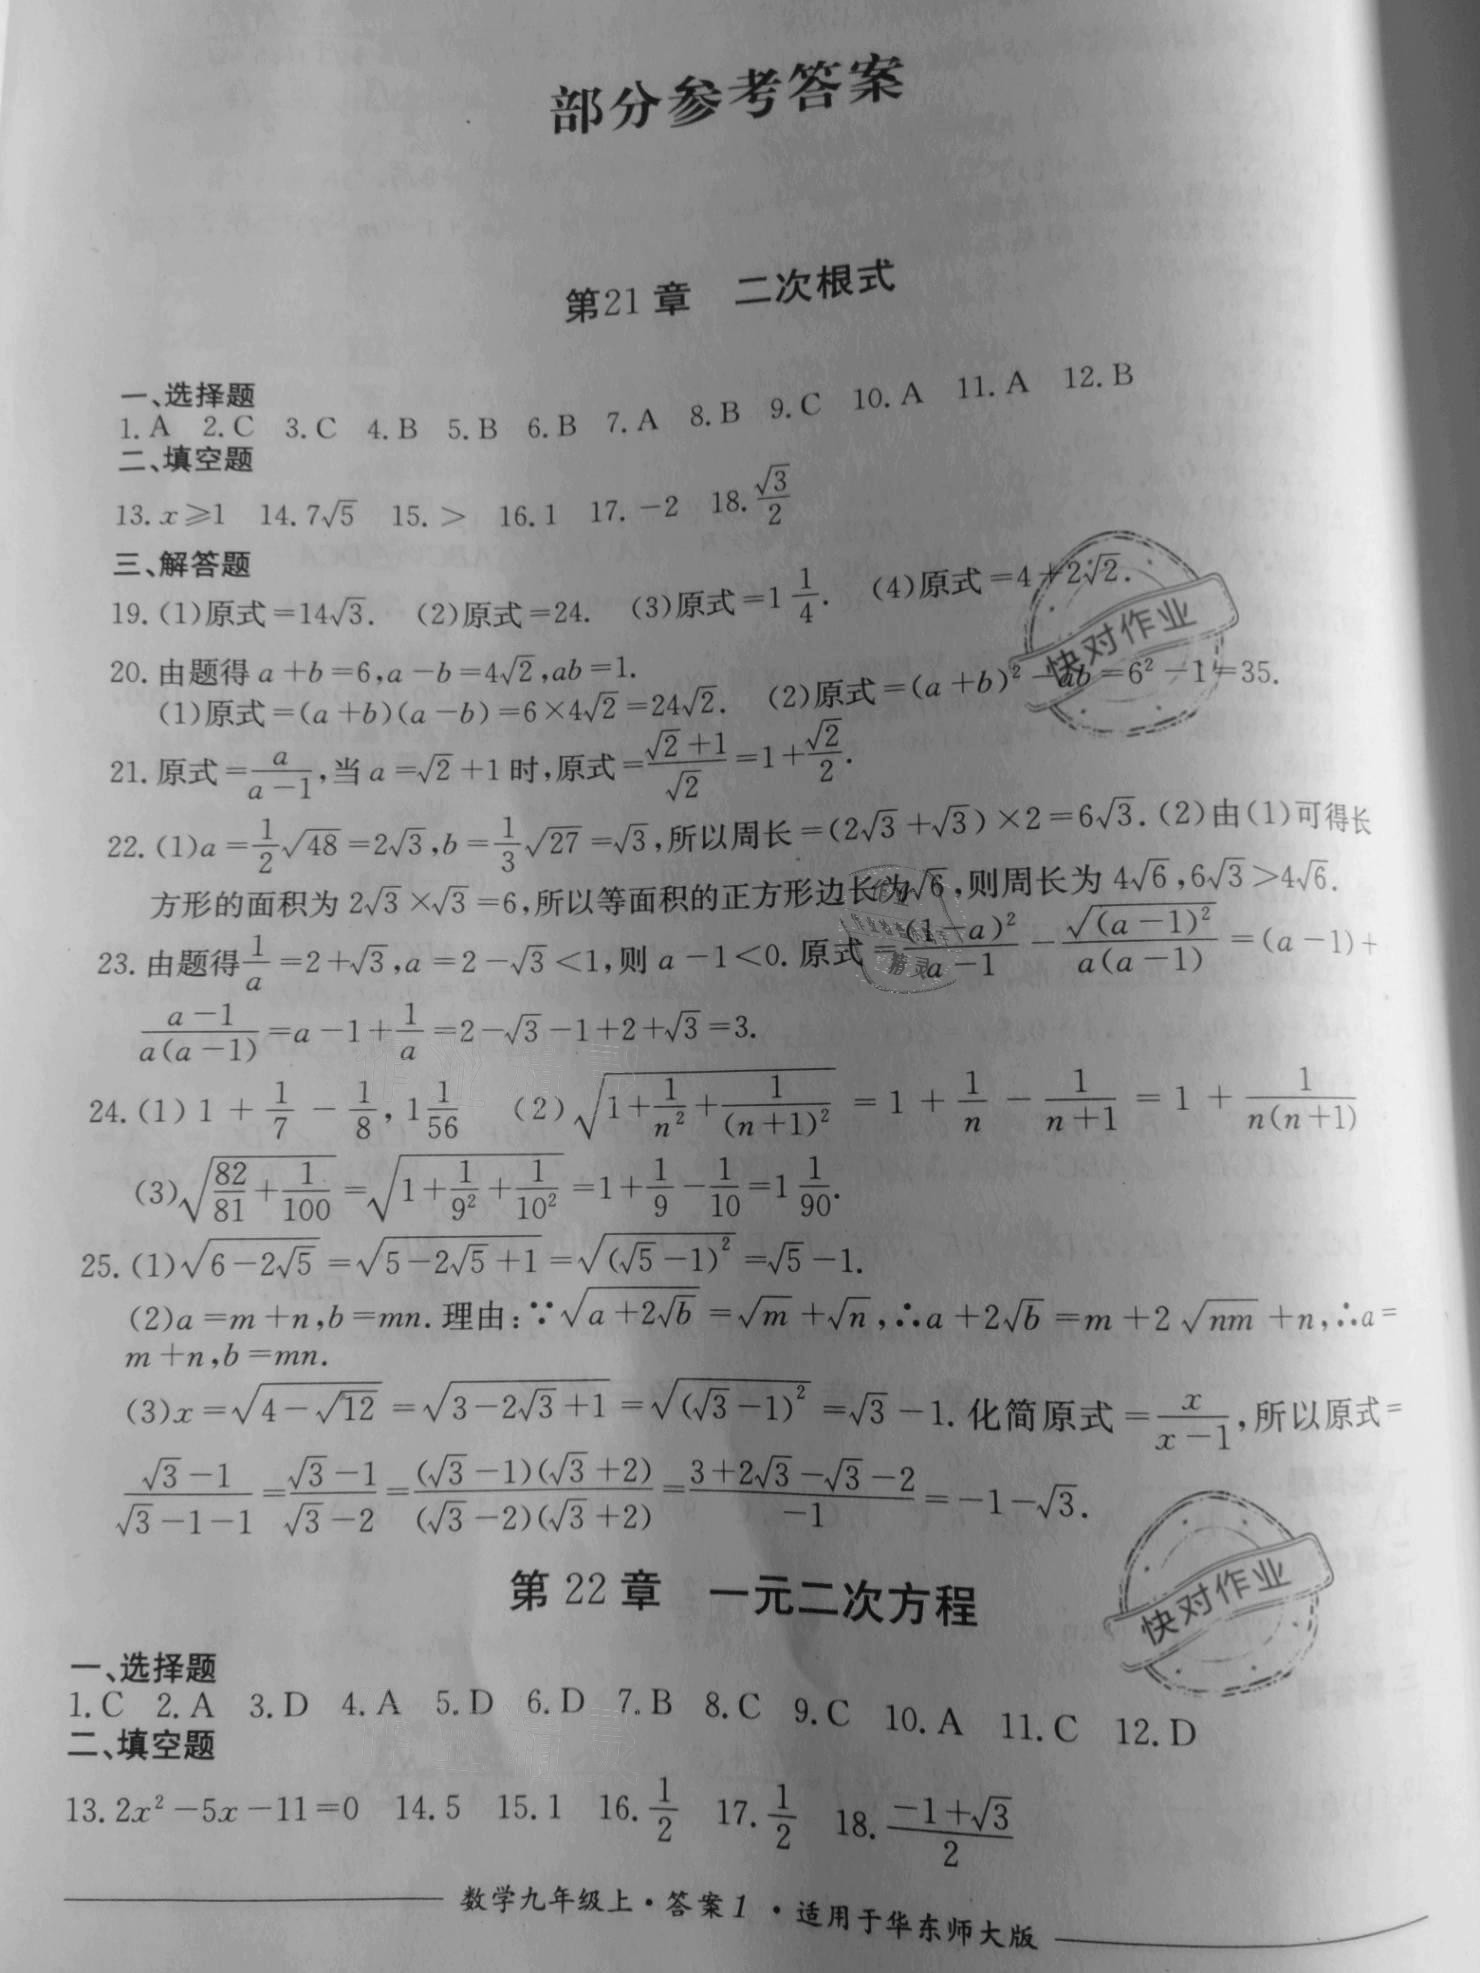 部分参考答案
第21章 二次根式
一、选择题
1. A 2. C 3. C 4. B 5. B 6. B 7. A 8. B 9. C 10. A 11. A 12. B
二、填空题
13. x⩾1 14. 7√5 15. > 16. 1 17. −2 18. √3/2
三、解答题
19. (1)原式=14√3. (2)原式=24. (3)原式=1 1/4. (4)原式=4+2√2.
20. 由题得 a+b=6,a−b=4√2,ab=1.
(1)原式=(a+b)(a−b)=6×4√2=24√2. (2)原式=(a+b)²−ab=6²−1=35.
21. 原式=a/(a−1),当a=√2+1时,原式=(√2+1)/√2=1+√2/2.
22. (1)a=1/2√48=2√3,b=1/3√27=√3,所以周长=(2√3+√3)×2=6√3. (2)由(1)可得长
方形的面积为2√3×√3=6,所以等面积的正方形边长为√6,则周长为4√6,6√3>4√6.
23. 由题得1/a=2+√3,a=2−√3<1,则a−1<0. 原式=(1−a)²/(a−1)−√((a−1)²)/(a(a−1))=(a−1)+
(a−1)/(a(a−1))=a−1+1/a=2−√3−1+2+√3=3.
24. (1)1+1/7−1/8,1 1/56 (2)√(1+1/n²+1/(n+1)²)=1+1/n−1/(n+1)=1+1/(n(n+1))
(3)√(82/81+1/100)=√(1+1/9²+1/10²)=1+1/9−1/10=1 1/90.
25. (1)√(6−2√5)=√(5−2√5+1)=√((√5−1)²)=√5−1.
(2)a=m+n,b=mn. 理由:∵√(a+2√b)=√m+√n,∴a+2√b=m+2√(nm)+n,∴a=
m+n,b=mn.
(3)x=√(4−√12)=√(3−2√3+1)=√((√3−1)²)=√3−1. 化简原式=x/(x−1),所以原式=
(√3−1)/(√3−1−1)=(√3−1)/(√3−2)=((√3−1)(√3+2))/((√3−2)(√3+2))=(3+2√3−√3−2)/(−1)=−1−√3.
第22章 一元二次方程
一、选择题
1. C 2. A 3. D 4. A 5. D 6. D 7. B 8. C 9. C 10. A 11. C 12. D
二、填空题
13. 2x²−5x−11=0 14. 5 15. 1 16. 1/2 17. 1/2 18. (−1+√3)/2
数学九年级上·答案1·适用于华东师大版
快对作业
快对作业